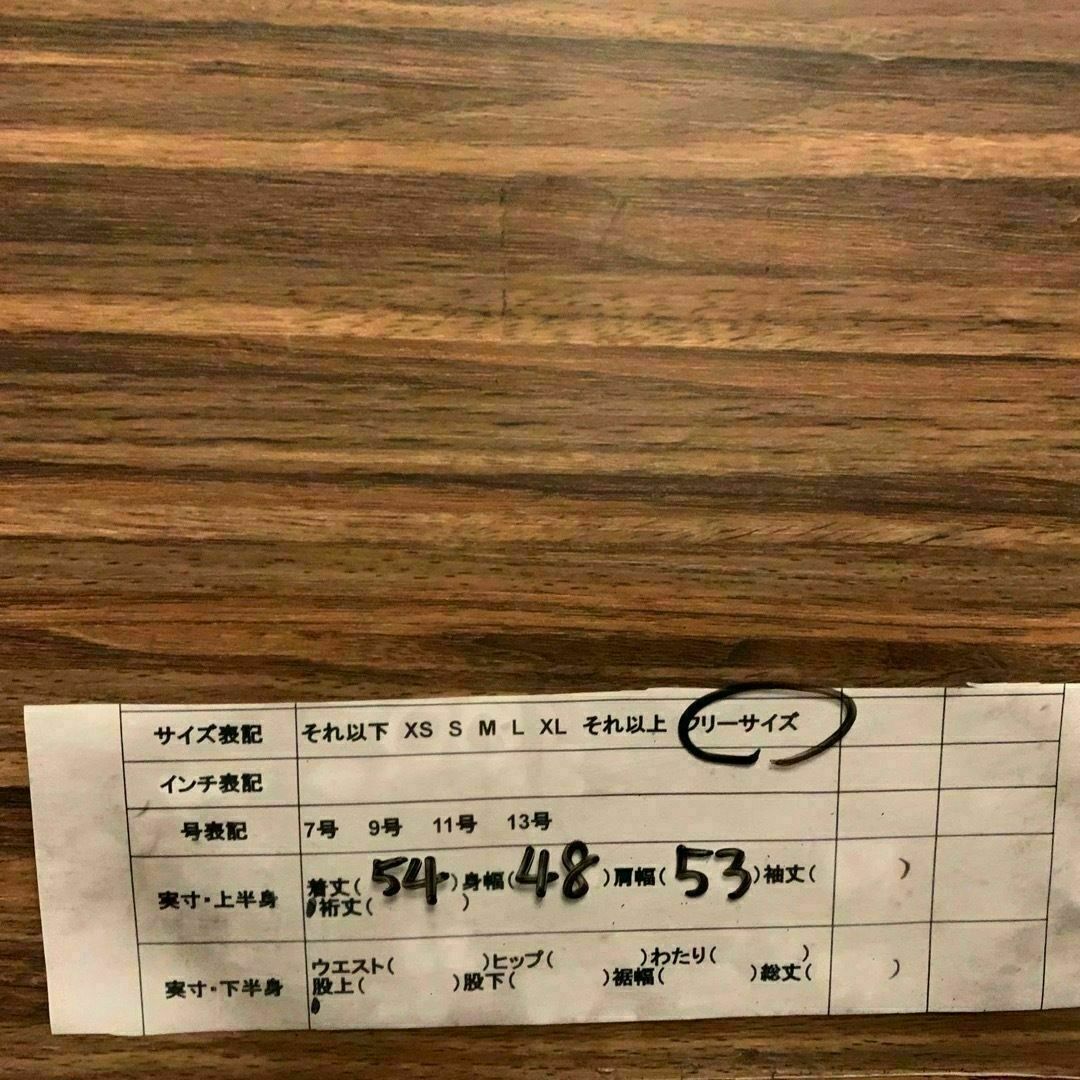 サイズ表記 それ以下 XS S M L XL それ以上 フリーサイズ
インチ表記
号表記 7号 9号 11号 13号
実寸・上半身 着丈( 54 )身幅( 48 )肩幅( 53 )袖丈( )
裄丈( )
実寸・下半身 ウエスト( )ヒップ( )わたり( )
股上( )股下( )裾幅( )総丈( )